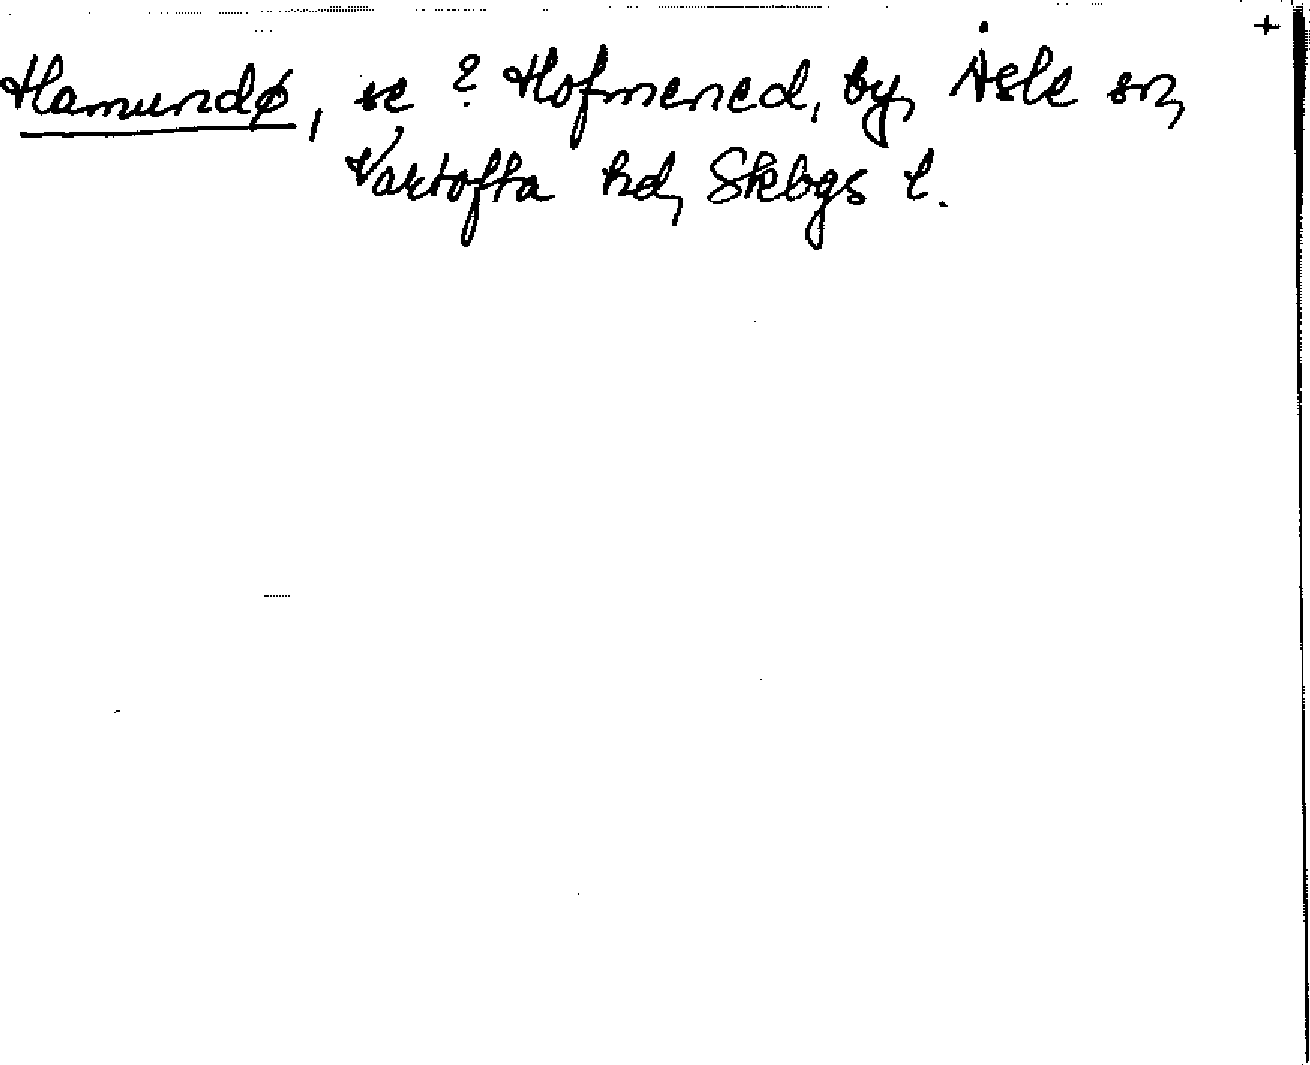 Hamundø, se ? Hofmened, by, Åsle sn,
Vartofta hd, Skbgs l.